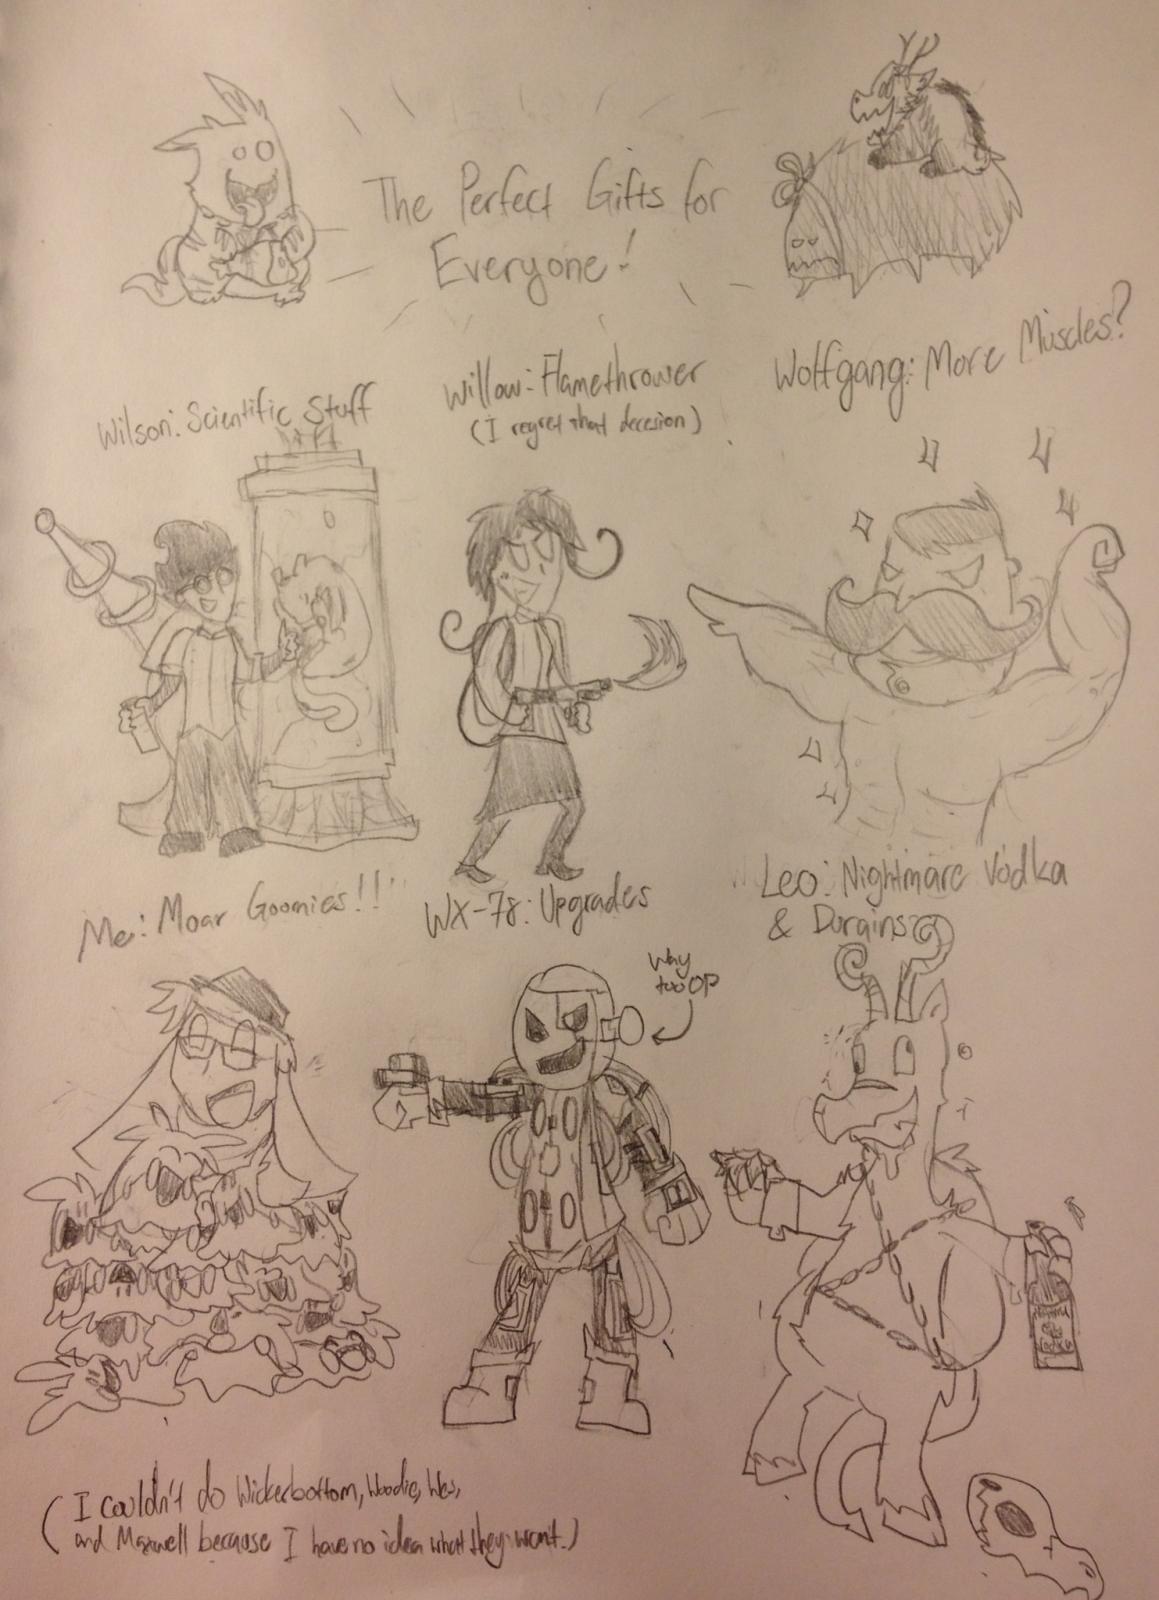 The Perfect Gifts for
Everyone!
Wilson: Scientific Stuff
Willow: Flamethrower
(I regret that decesion)
Wolfgang: More Muscles?
Me: Moar Goomies!!
WX-78: Upgrades
Way
too OP
Leo: Nightmare Vodka
& Durains
Vodka
(I couldn't do Wickerbottom, Woodie, Wes,
and Maxwell because I have no idea what they want.)